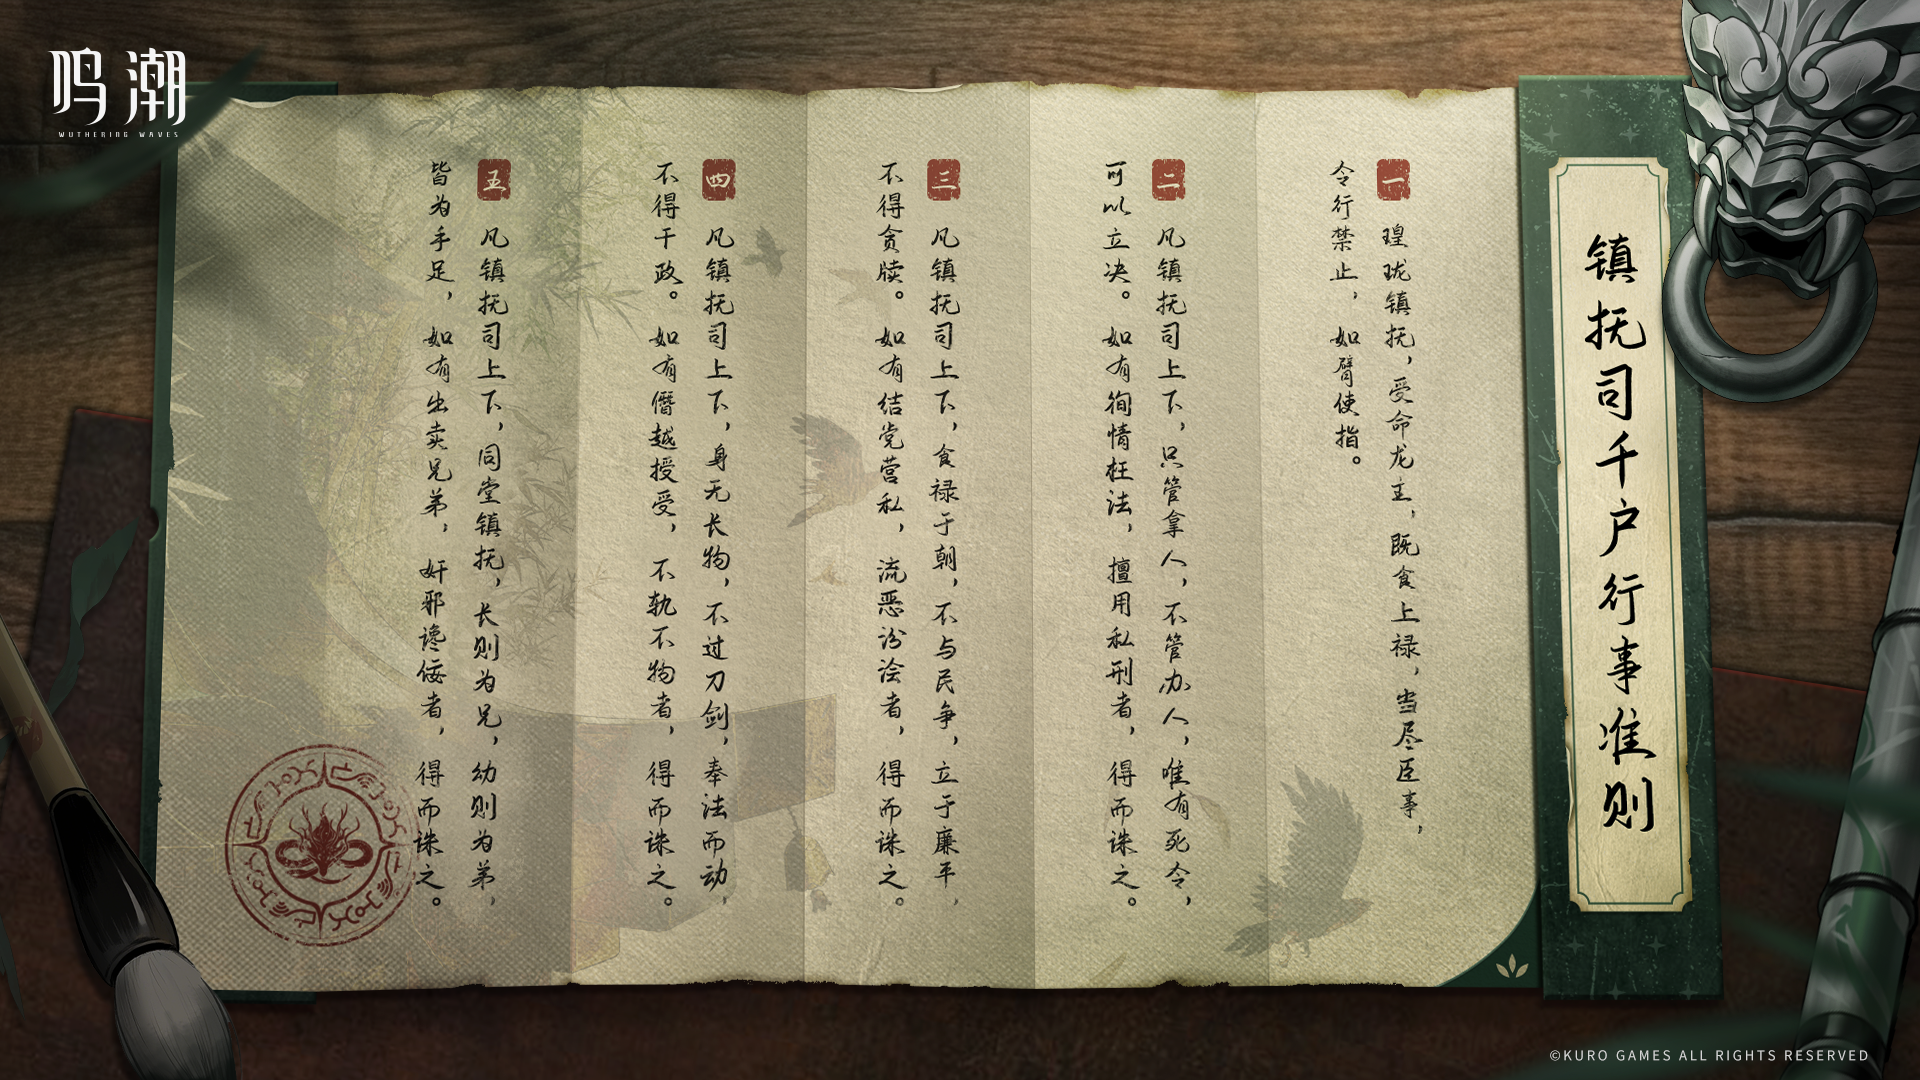 鸣潮
WUTHERING WAVES
镇抚司千户行事准则
一
瑝珑镇抚，受命龙主，既食上禄，当尽臣事，
令行禁止，如臂使指。
二
凡镇抚司上下，只管拿人，不管办人，唯有死令，
可以立决。如有徇情枉法，擅用私刑者，得而诛之。
三
凡镇抚司上下，食禄于朝，不与民争，立于廉平，
不得贪牍。如有结党营私，流恶汾浍者，得而诛之。
四
凡镇抚司上下，身无长物，不过刀剑，奉法而动，
不得干政。如有僭越授受，不轨不物者，得而诛之。
五
凡镇抚司上下，同堂镇抚，长则为兄，幼则为弟，
皆为手足，如有出卖兄弟，奸邪谗佞者，得而诛之。
©KURO GAMES ALL RIGHTS RESERVED